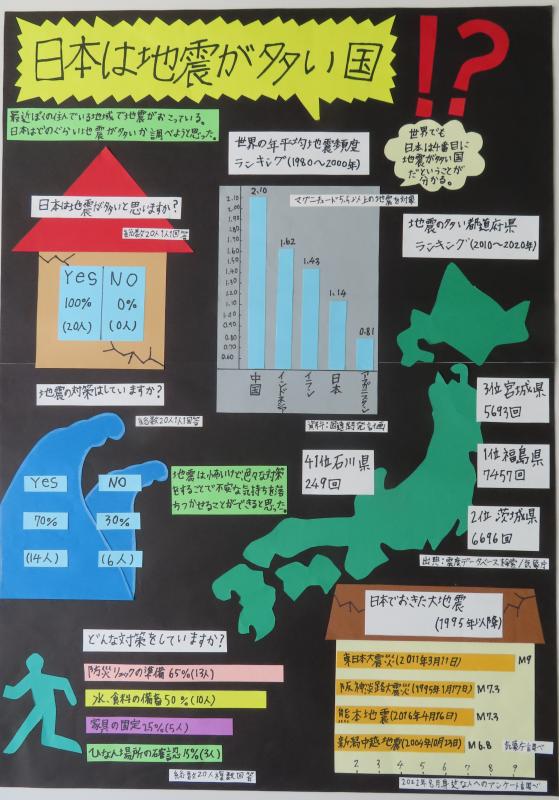 日本は地震が多い国
!?
最近ぼくの住んでいる地域で地震がおこっている。
日本はどのぐらい地震が多いか調べようと思った。
世界でも
日本は4番目に
地震が多い国
だということが
分かる。
日本は地震が多いと思いますか?
総数20人1人1回答
YES NO
100% 0%
(20人) (0人)
世界の年平均地震頻度
ランキング(1980~2000年)
マグニチュード5.5以上の地震を対象
2.10
2.00
1.90
1.80
1.70
1.60
1.50
1.40
1.30
1.20
1.10
1.00
0.90
0.80
0.70
0.60
2.10
1.62
1.43
1.14
0.81
中国
インドネシア
イラン
日本
アフガニスタン
資料:国連開発計画
地震の多い都道府県
ランキング(2010~2020年)
3位宮城県
5693回
1位福島県
7457回
2位茨城県
6696回
41位石川県
249回
出典:震度データベース検索/気象庁
地震の対策はしていますか?
総数20人1人1回答
YES NO
70% 30%
(14人) (6人)
地震は小怖いけど色々な対策
をすることで不安な気持ちを落
ちつかせることができると思った。
どんな対策をしていますか?
防災リュックの準備 65%(13人)
水、食料の備蓄 50%(10人)
家具の固定 25%(5人)
ひなん場所の確認 15%(3人)
総数20人複数回答
日本でおきた大地震
(1995年以降)
東日本大震災(2011年3月11日) M9
阪神淡路大震災(1995年1月17日) M7.3
熊本地震(2016年4月16日) M7.3
新潟中越地震(2004年10月23日) M6.8
気象庁調べ
2 3 4 5 6 7 8 9